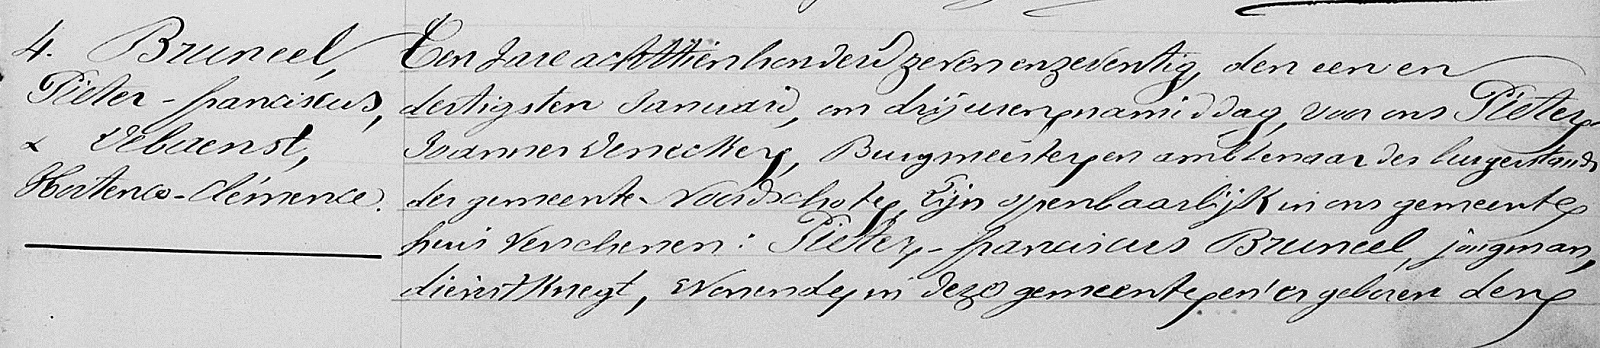 4. Bruneel,
Pieter-franciscus,
& Vebaenst,
Hortence-Clémence.
Ten Jare achttien honderd zeven en zeventig, den een en
dertigsten Januari, om drij uren namiddag, voor ons Pieter
Joannes Denecker, Burgmeester en ambtenaar des burgerstands
der gemeente Noordschote, zijn openbaarlijk in ons gemeente
huis verschenen: Pieter-franciscus Bruneel, jongman,
dienstknegt, wonende in deze gemeente en er geboren den